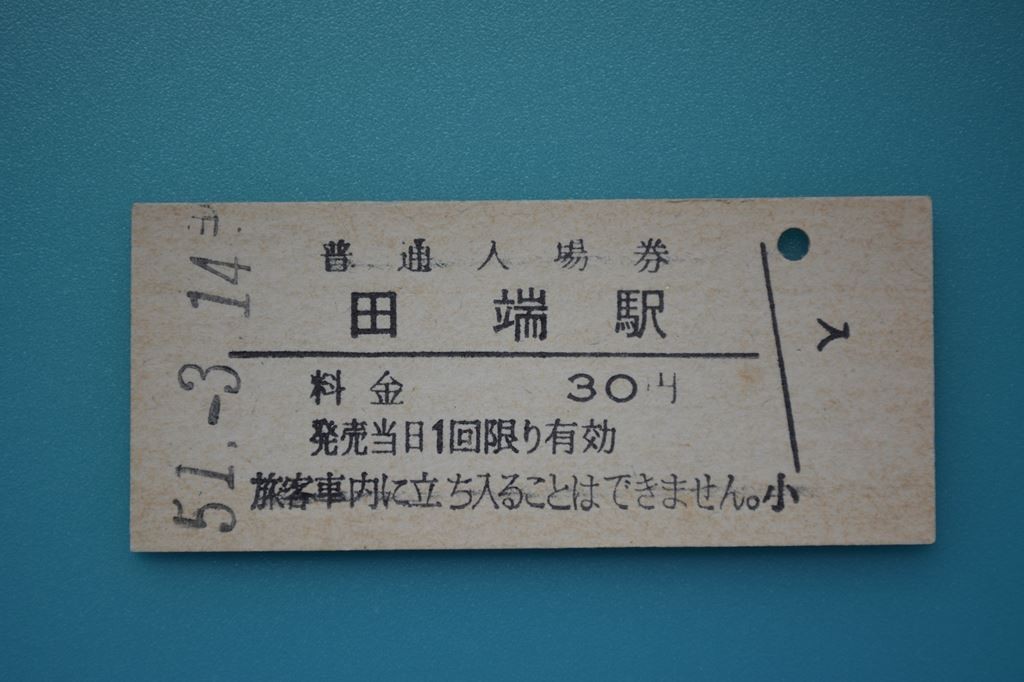 51.-3.14
普通入場券
田端駅
料金 30円
発売当日1回限り有効
旅客車内に立ち入ることはできません。小
入